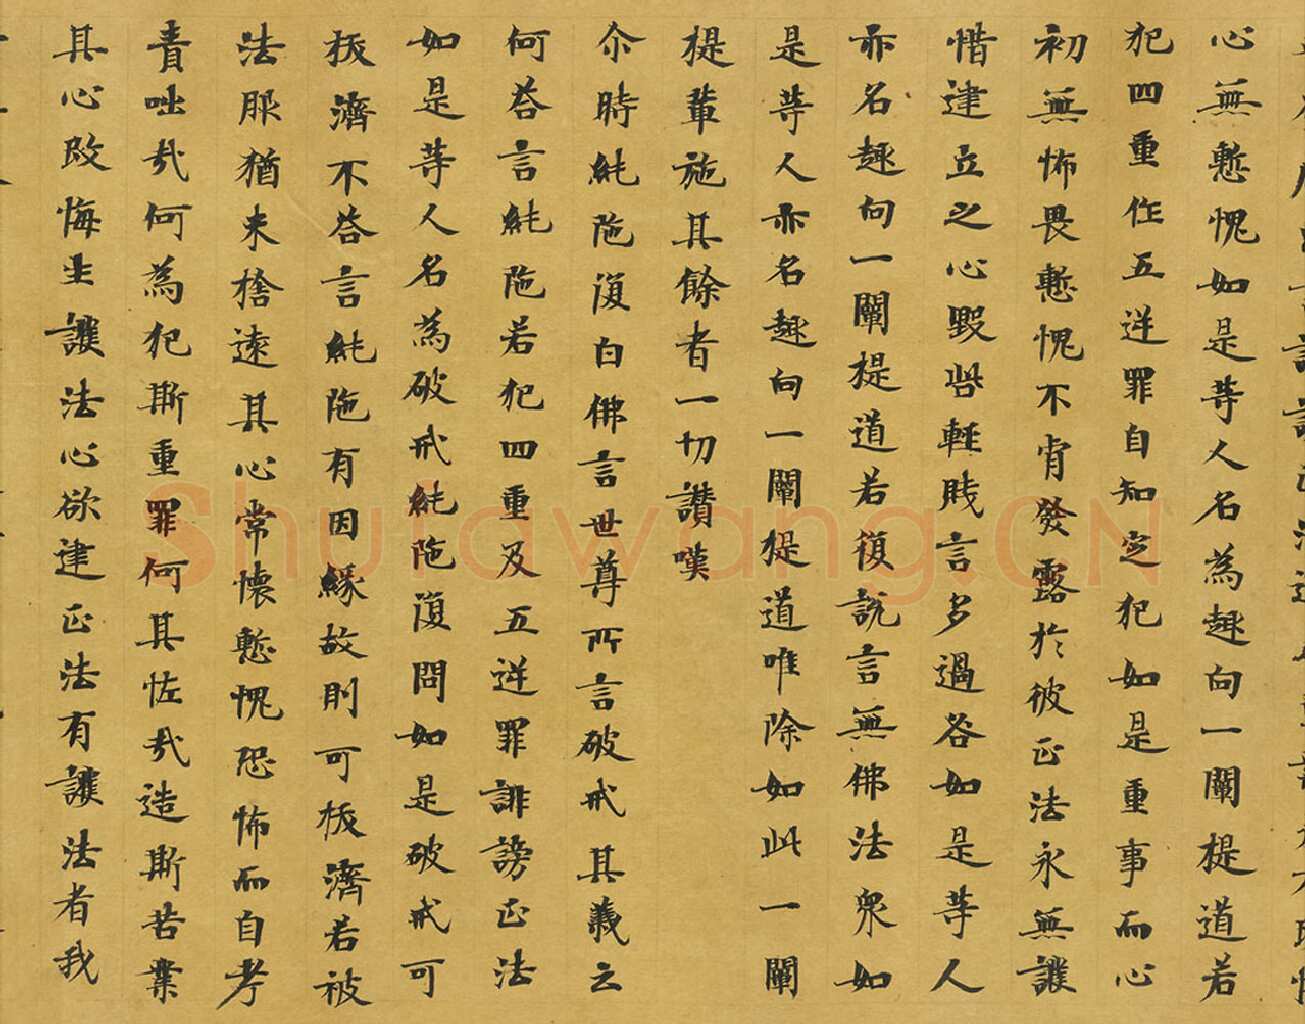 心無慙愧如是等人名為趣向一闡提道若
犯四重作五逆罪自知定犯如是重事而心
初無怖畏慙愧不肯發露於彼正法永無護
惜建立之心毀呰輕賤言多過咎如是等人
亦名趣向一闡提道若復說言無佛法眾如
是等人亦名趣向一闡提道唯除如此一闡
提輩施其餘者一切讚嘆
尒時純陁復白佛言世尊所言破戒其義云
何荅言純陁若犯四重及五逆罪誹謗正法
如是等人名為破戒純陁復問如是破戒可
拔濟不荅言純陁有因緣故則可拔濟若被
法服猶未捨遠其心常懷慙愧恐怖而自考
責咄哉何為犯斯重罪何其怪哉造斯苦業
其心改悔生護法心欲建正法有護法者我
Shufawang.CN